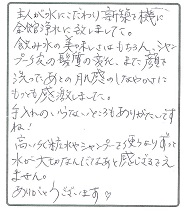 主人が水にこだわり新築を機に
全館浄水に致しました。
飲み水の美味しさはもちろん、シャン
プー後の髪質の変化、まで、顔を
洗ってあとの肌感のしなやかさに
もっても感激しました。
手入れのいらないところもありがたいです
ね！
高い化粧水やシャンプーを使うよりずっと
水が大切なんだなあと感じずるさえ
ません。
ありがとうございます♡